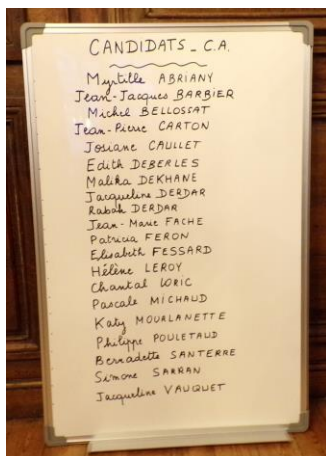 CANDIDATS - C.A.
Myrtille ABRIANY
Jean-Jacques BARBIER
Michel BELLOSSAT
Jean-Pierre CARTON
Josiane CAULLET
Edith DEBERLES
Malika DEKHANE
Jacqueline DERDAR
Rabah DERDAR
Jean-Marie FACHE
Patricia FERON
Elisabeth FESSARD
Hélène LEROY
Chantal LORIC
Pascale MICHAUD
Katy MOURLANETTE
Philippe POULETAUD
Bernadette SANTERRE
Simone SARRAN
Jacqueline VAUQUET